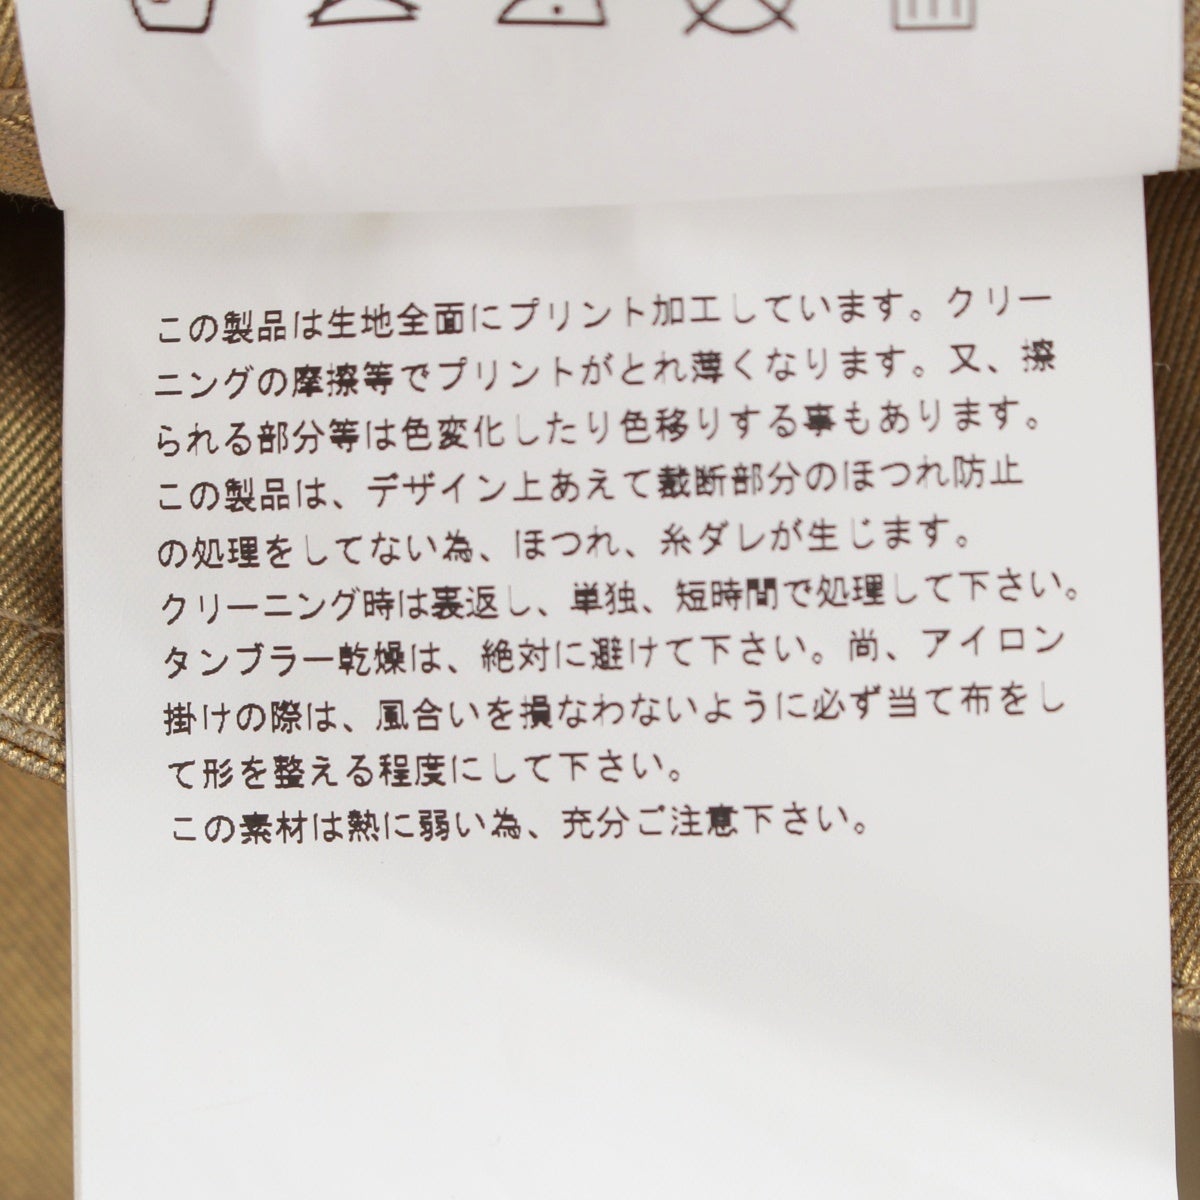 この製品は生地全面にプリント加工しています。クリー
ニングの摩擦等でプリントがとれ薄くなります。又、擦
られる部分等は色変化したり色移りする事もあります。
この製品は、デザイン上あえて裁断部分のほつれ防止
の処理をしてない為、ほつれ、糸ダレが生じます。
クリーニング時は裏返し、単独、短時間で処理して下さい。
タンブラー乾燥は、絶対に避けて下さい。尚、アイロン
掛けの際は、風合いを損なわないように必ず当て布をし
て形を整える程度にして下さい。
この素材は熱に弱い為、充分ご注意下さい。